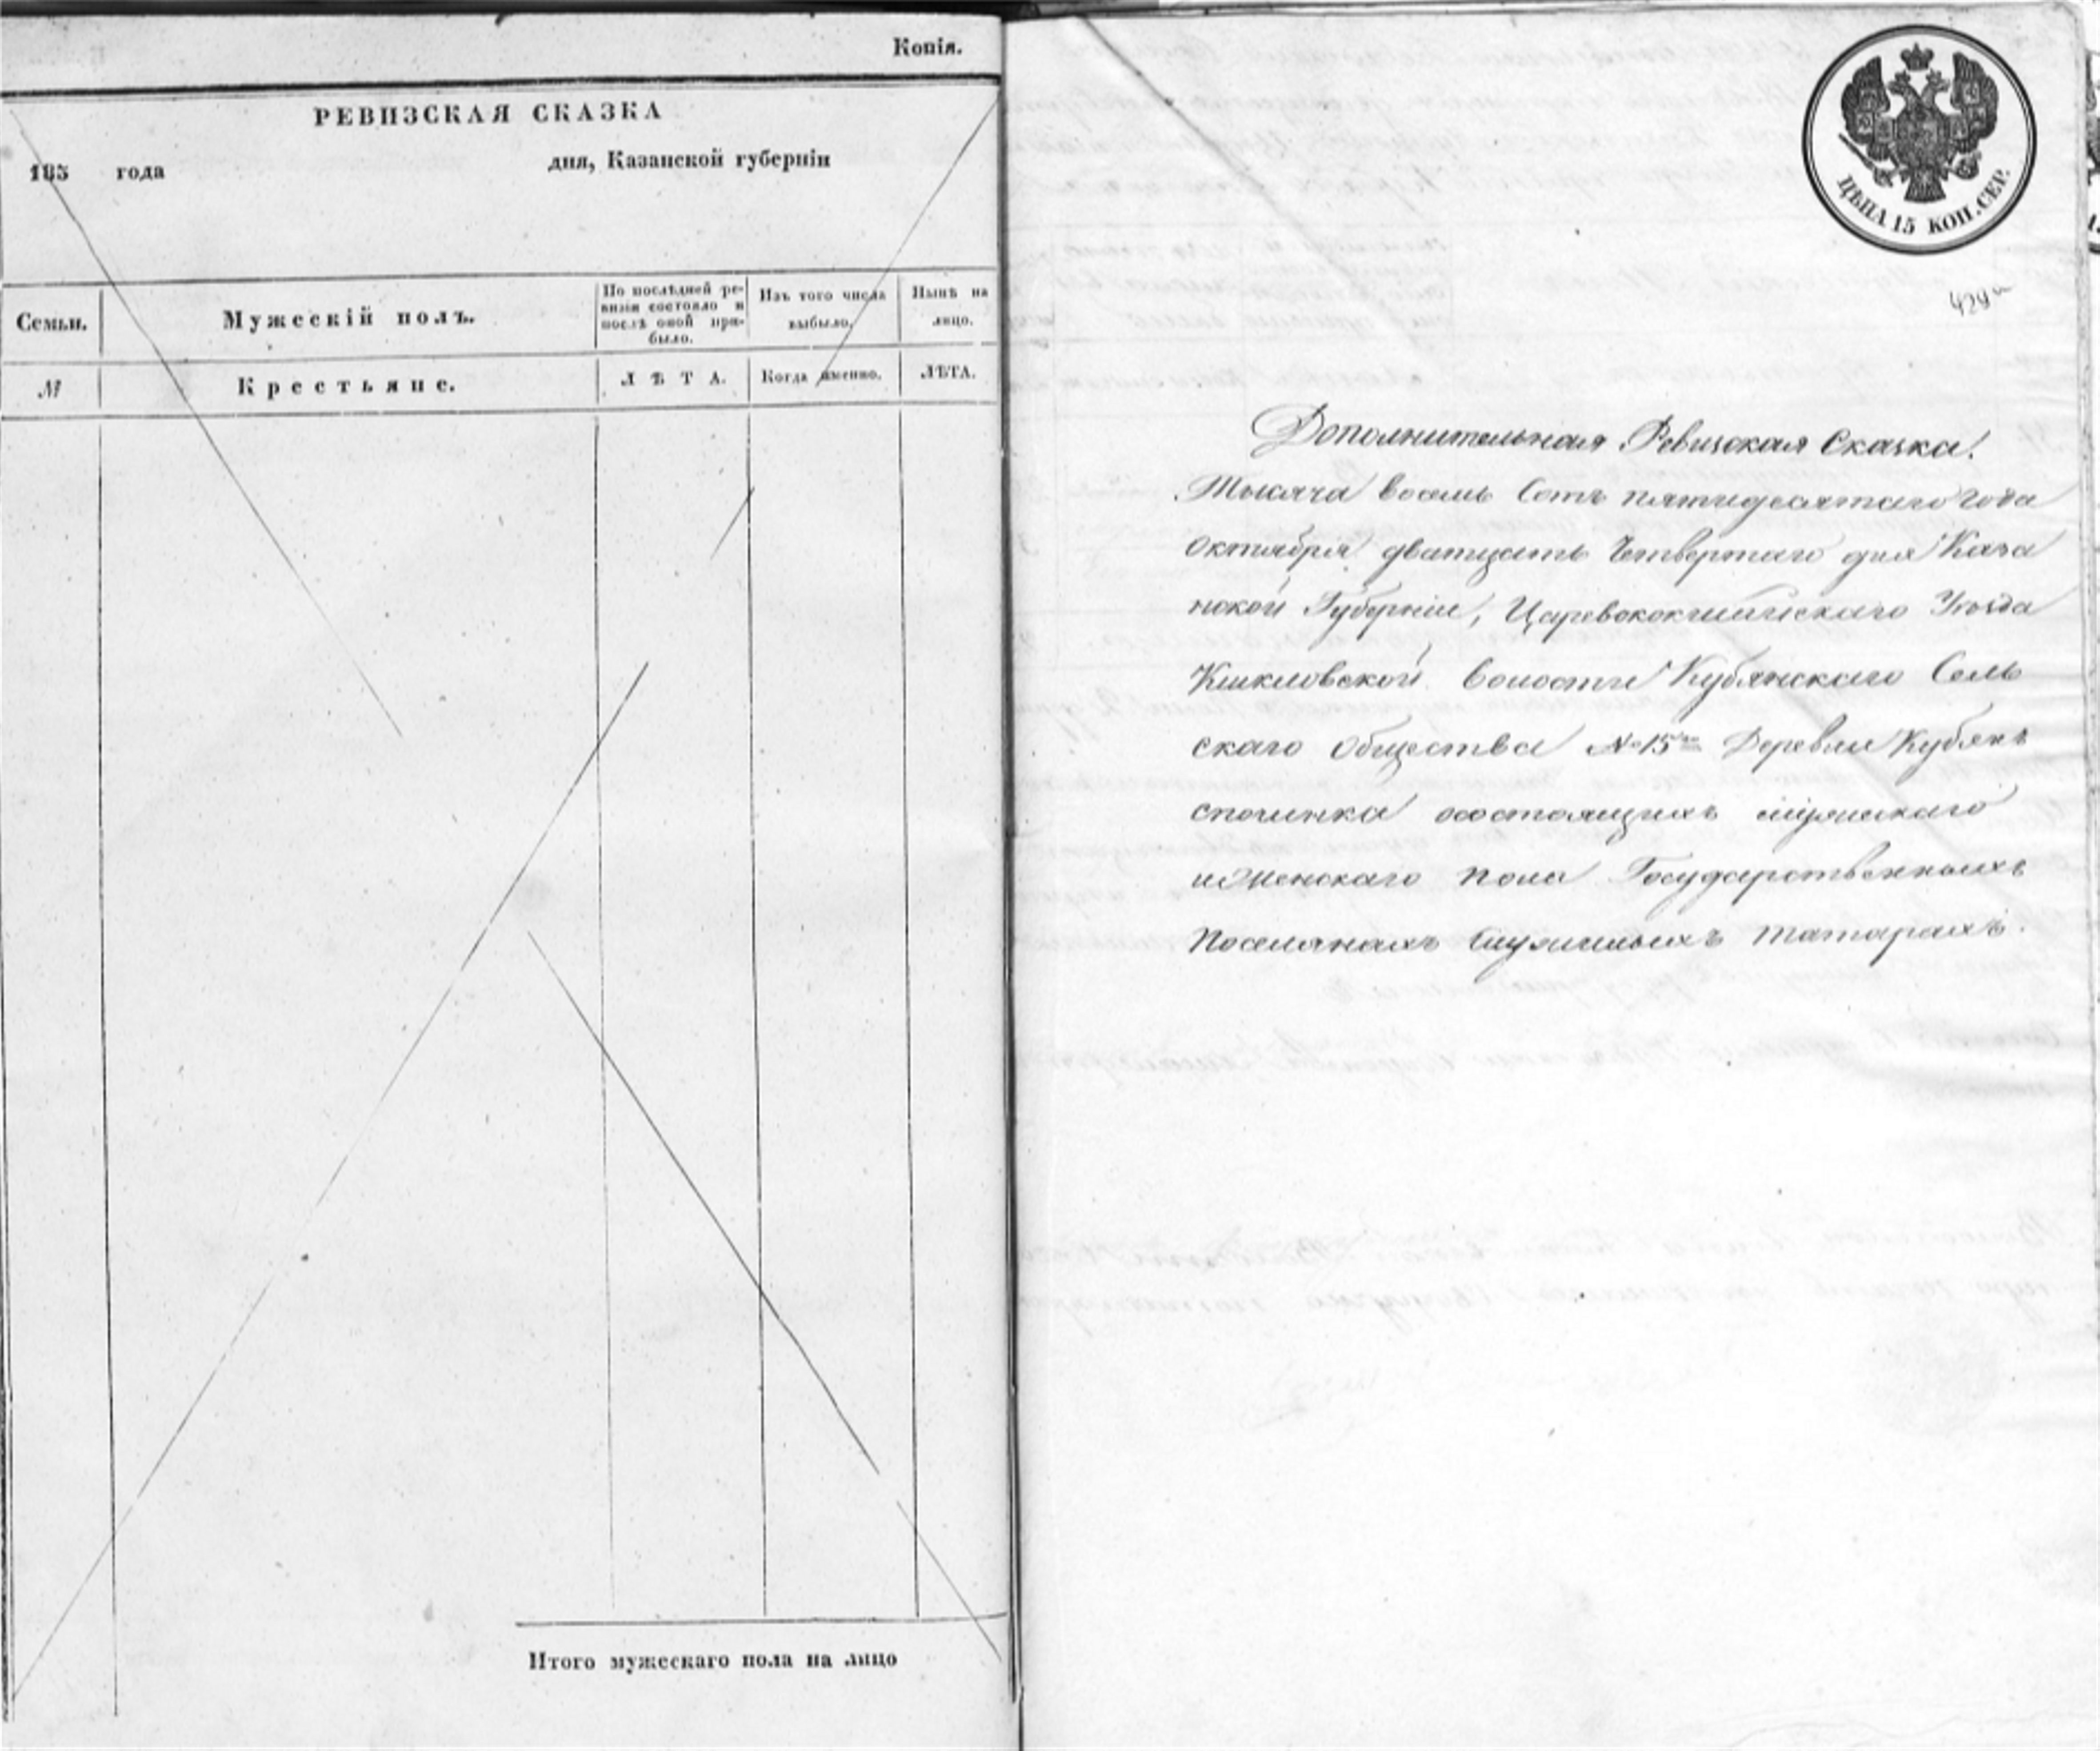 Копія.
РЕВИЗСКАЯ СКАЗКА
185 года дня, Казанской губерніи
Семьи.
Мужескій полъ.
По послѣдней ре-
визіи состояло и
послѣ оной при-
было.
Изъ того числа
выбыло.
Нынѣ на
лицо.
№
Крестьяне.
ЛѢТА.
Когда именно.
ЛѢТА.
Итого мужескаго пола на лицо
ЦѢНА 15 КОП. СЕР.
Дополнительная Ревизская Сказка.
Тысяча восемь Сотъ пятидесятаго года
октября дватцать Четвертаго дня Каза
нской Губерніи, Царевококшайскаго Уѣзда
Кшкловской волости Кубянскаго Сель
скаго общества №15го Деревни Кубянъ
спочинка состоящихъ мужескаго
и Женскаго пола Государственныхъ
поселянахъ Служилыхъ татарахъ.